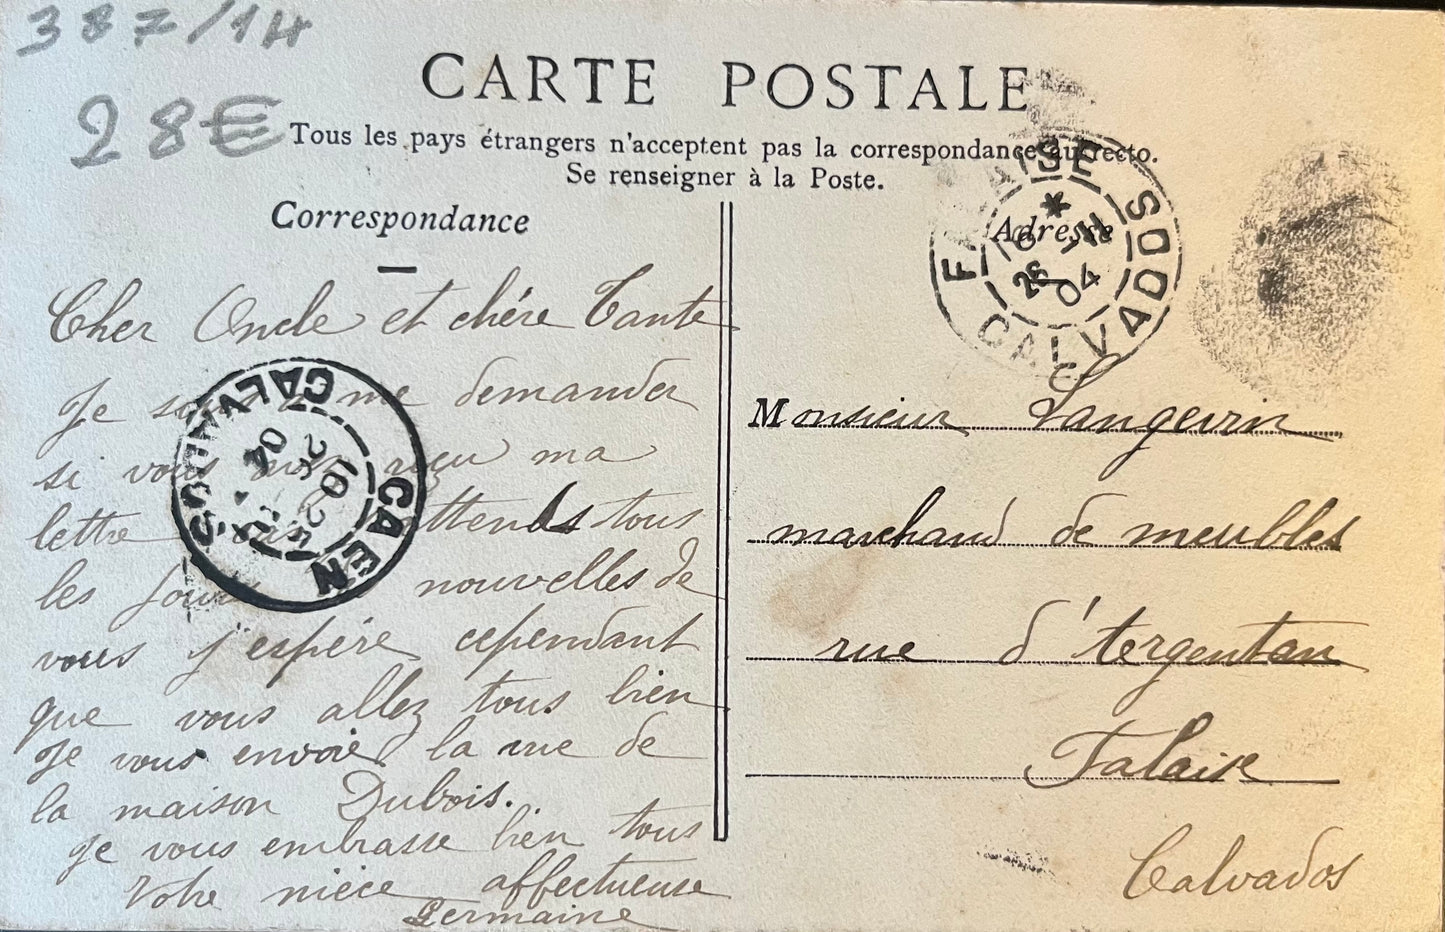 387/14
28€
CARTE POSTALE
Tous les pays étrangers n'acceptent pas la correspondance au recto.
Se renseigner à la Poste.
Correspondance
Cher Oncle et chère Tante
Je me demander
si vous reçu ma
lettre attends tous
les jours nouvelles de
vous j'espére cependant
que vous allez tous bien
Je vous envoie la vue de
la maison Dubois.
Je vous embrasse bien tous
Votre nièce affectueuse
Germaine
CAEN CALVADOS
10
04
FALAISE CALVADOS
26
04
Adresse
Monsieur Langevin
marchand de meubles
rue d'Argentan
Falaise
Calvados